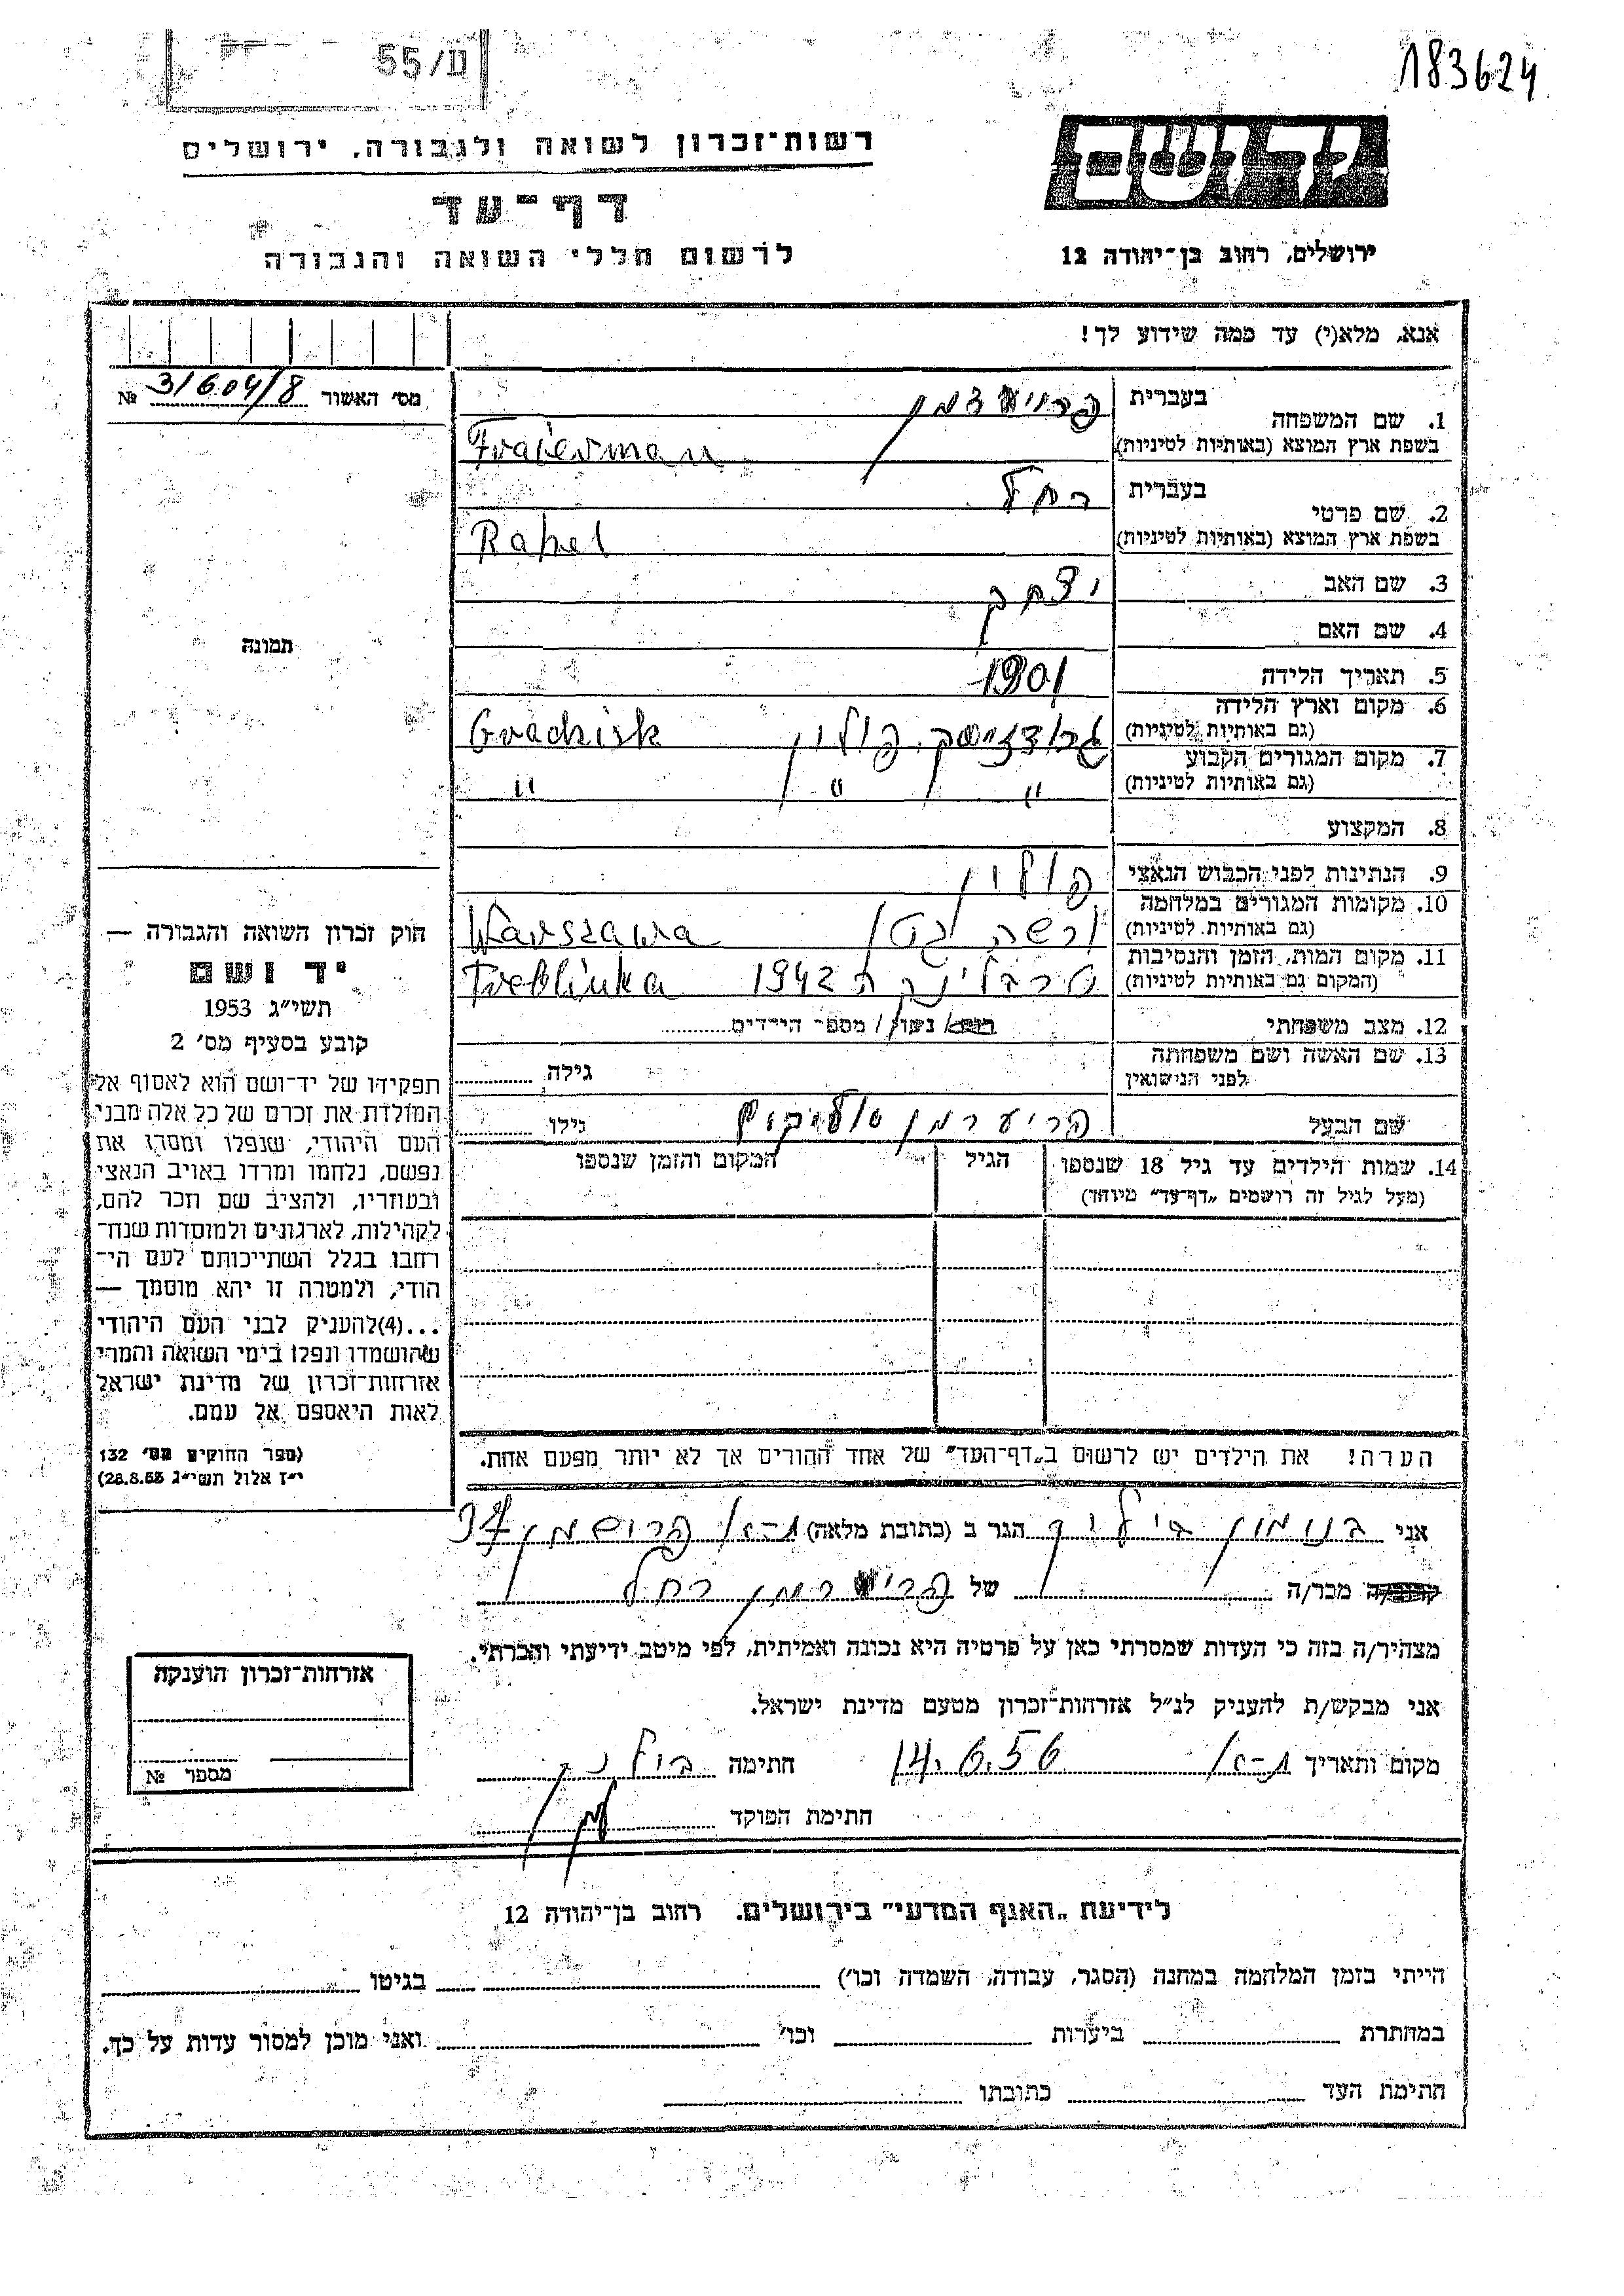 ע/55
183624
יד ושם
רשות־זכרון לשואה ולגבורה, ירושלים
דף־עד
לרשום חללי השואה והגבורה
ירושלים, רחוב בן־יהודה 12
אנא, מלא(י) עד כמה שידוע לך!
מס' האשור 31604/8 №
1. שם המשפחה
בעברית
בשפת ארץ המוצא (באותיות לטיניות) Fraierman
2. שם פרטי
בעברית רחל
בשפת ארץ המוצא (באותיות לטיניות) Rahel
3. שם האב יצחק
4. שם האם
5. תאריך הלידה 1901
6. מקום וארץ הלידה
(גם באותיות לטיניות) פולין
7. מקום המגורים הקבוע
(גם באותיות לטיניות) " " "
8. המקצוע
9. הנתינות לפני הכבוש הנאצי פולין
10. מקומות המגורים במלחמה
(גם באותיות לטיניות) ורשה גטו Warszawa
11. מקום המות, הזמן והנסיבות
(המקום גם באותיות לטיניות) טרבלינקה 1942 Treblinka
12. מצב משפחתי רווק/ נשוי/ מספר הילדים
13. שם האשה ושם משפחתה
לפני הנישואין
גילה
שם הבעל
גילו
14. שמות הילדים עד גיל 18 שנספו
(מעל לגיל זה רושמים „דף־עד" מיוחד)
הגיל
המקום והזמן שנספו
הערה! את הילדים יש לרשום ב„דף־העד" של אחד ההורים אך לא יותר מפעם אחת.
תמונה
חוק זכרון השואה והגבורה —
יד ושם
תשי"ג 1953
קובע בסעיף מס' 2
תפקידו של יד־ושם הוא לאסוף אל
המולדת את זכרם של כל אלה מבני
העם היהודי, שנפלו ומסרו את
נפשם, נלחמו ומרדו באויב הנאצי
ובעוזריו, ולהציב שם וזכר להם,
לקהילות, לארגונים ולמוסדות שנח־
רחבו בגלל השתייכותם לעם הי־
הודי, ולמטרה זו יהא מוסמך —
...(4)להעניק לבני העם היהודי
שהושמדו ונפלו בימי השואה והמרי
אזרחות־זכרון של מדינת ישראל
לאות היאספם אל עמם.
(ספר החוקים מס' 132
י"ז אלול תשי"ג 28.8.53)
אני הגר ב (כתובת מלאה) ת-א 37
קרוב/ה מכר/ה של רחל
מצהיר/ה בזה כי העדות שמסרתי כאן על פרטיה היא נכונה ואמיתית, לפי מיטב ידיעתי והכרתי.
אני מבקש/ת להעניק לנ"ל אזרחות־זכרון מטעם מדינת ישראל.
מקום ותאריך ת-א 14.6.56 חתימה
חתימת הפוקד
אזרחות־זכרון הוענקה
מספר №
לידיעת „האגף המדעי" בירושלים. רחוב בן־יהודה 12
הייתי בזמן המלחמה במחנה (הסגר, עבודה, השמדה וכו') בגיטו
במחתרת ביערות וכו' ואני מוכן למסור עדות על כך.
חתימת העד כתובתו